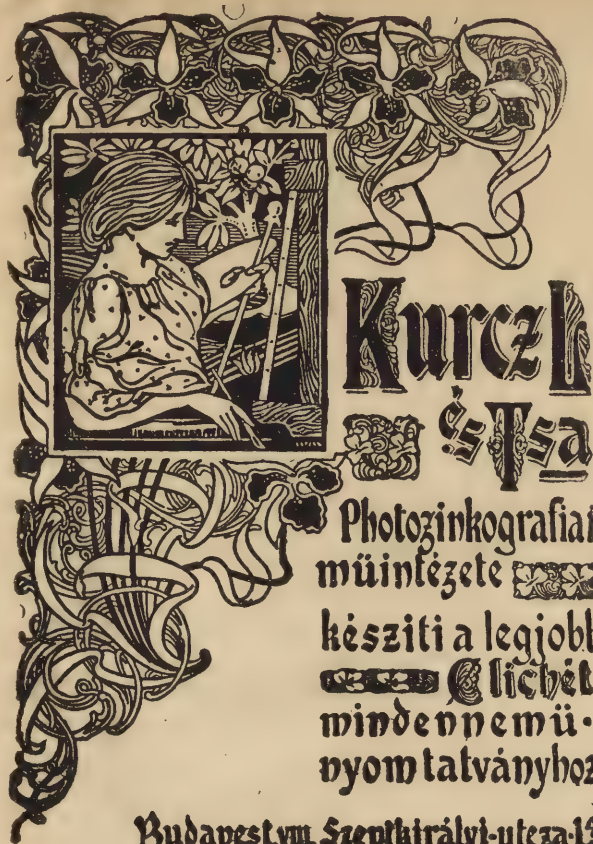 Kurcz L
és Tsa
Photozinkografiai
müintézete
késziti a legjobb
Clichét
mindennemü
nyomtatványhoz
Budapest, VIII. Szentkirályi-utcza